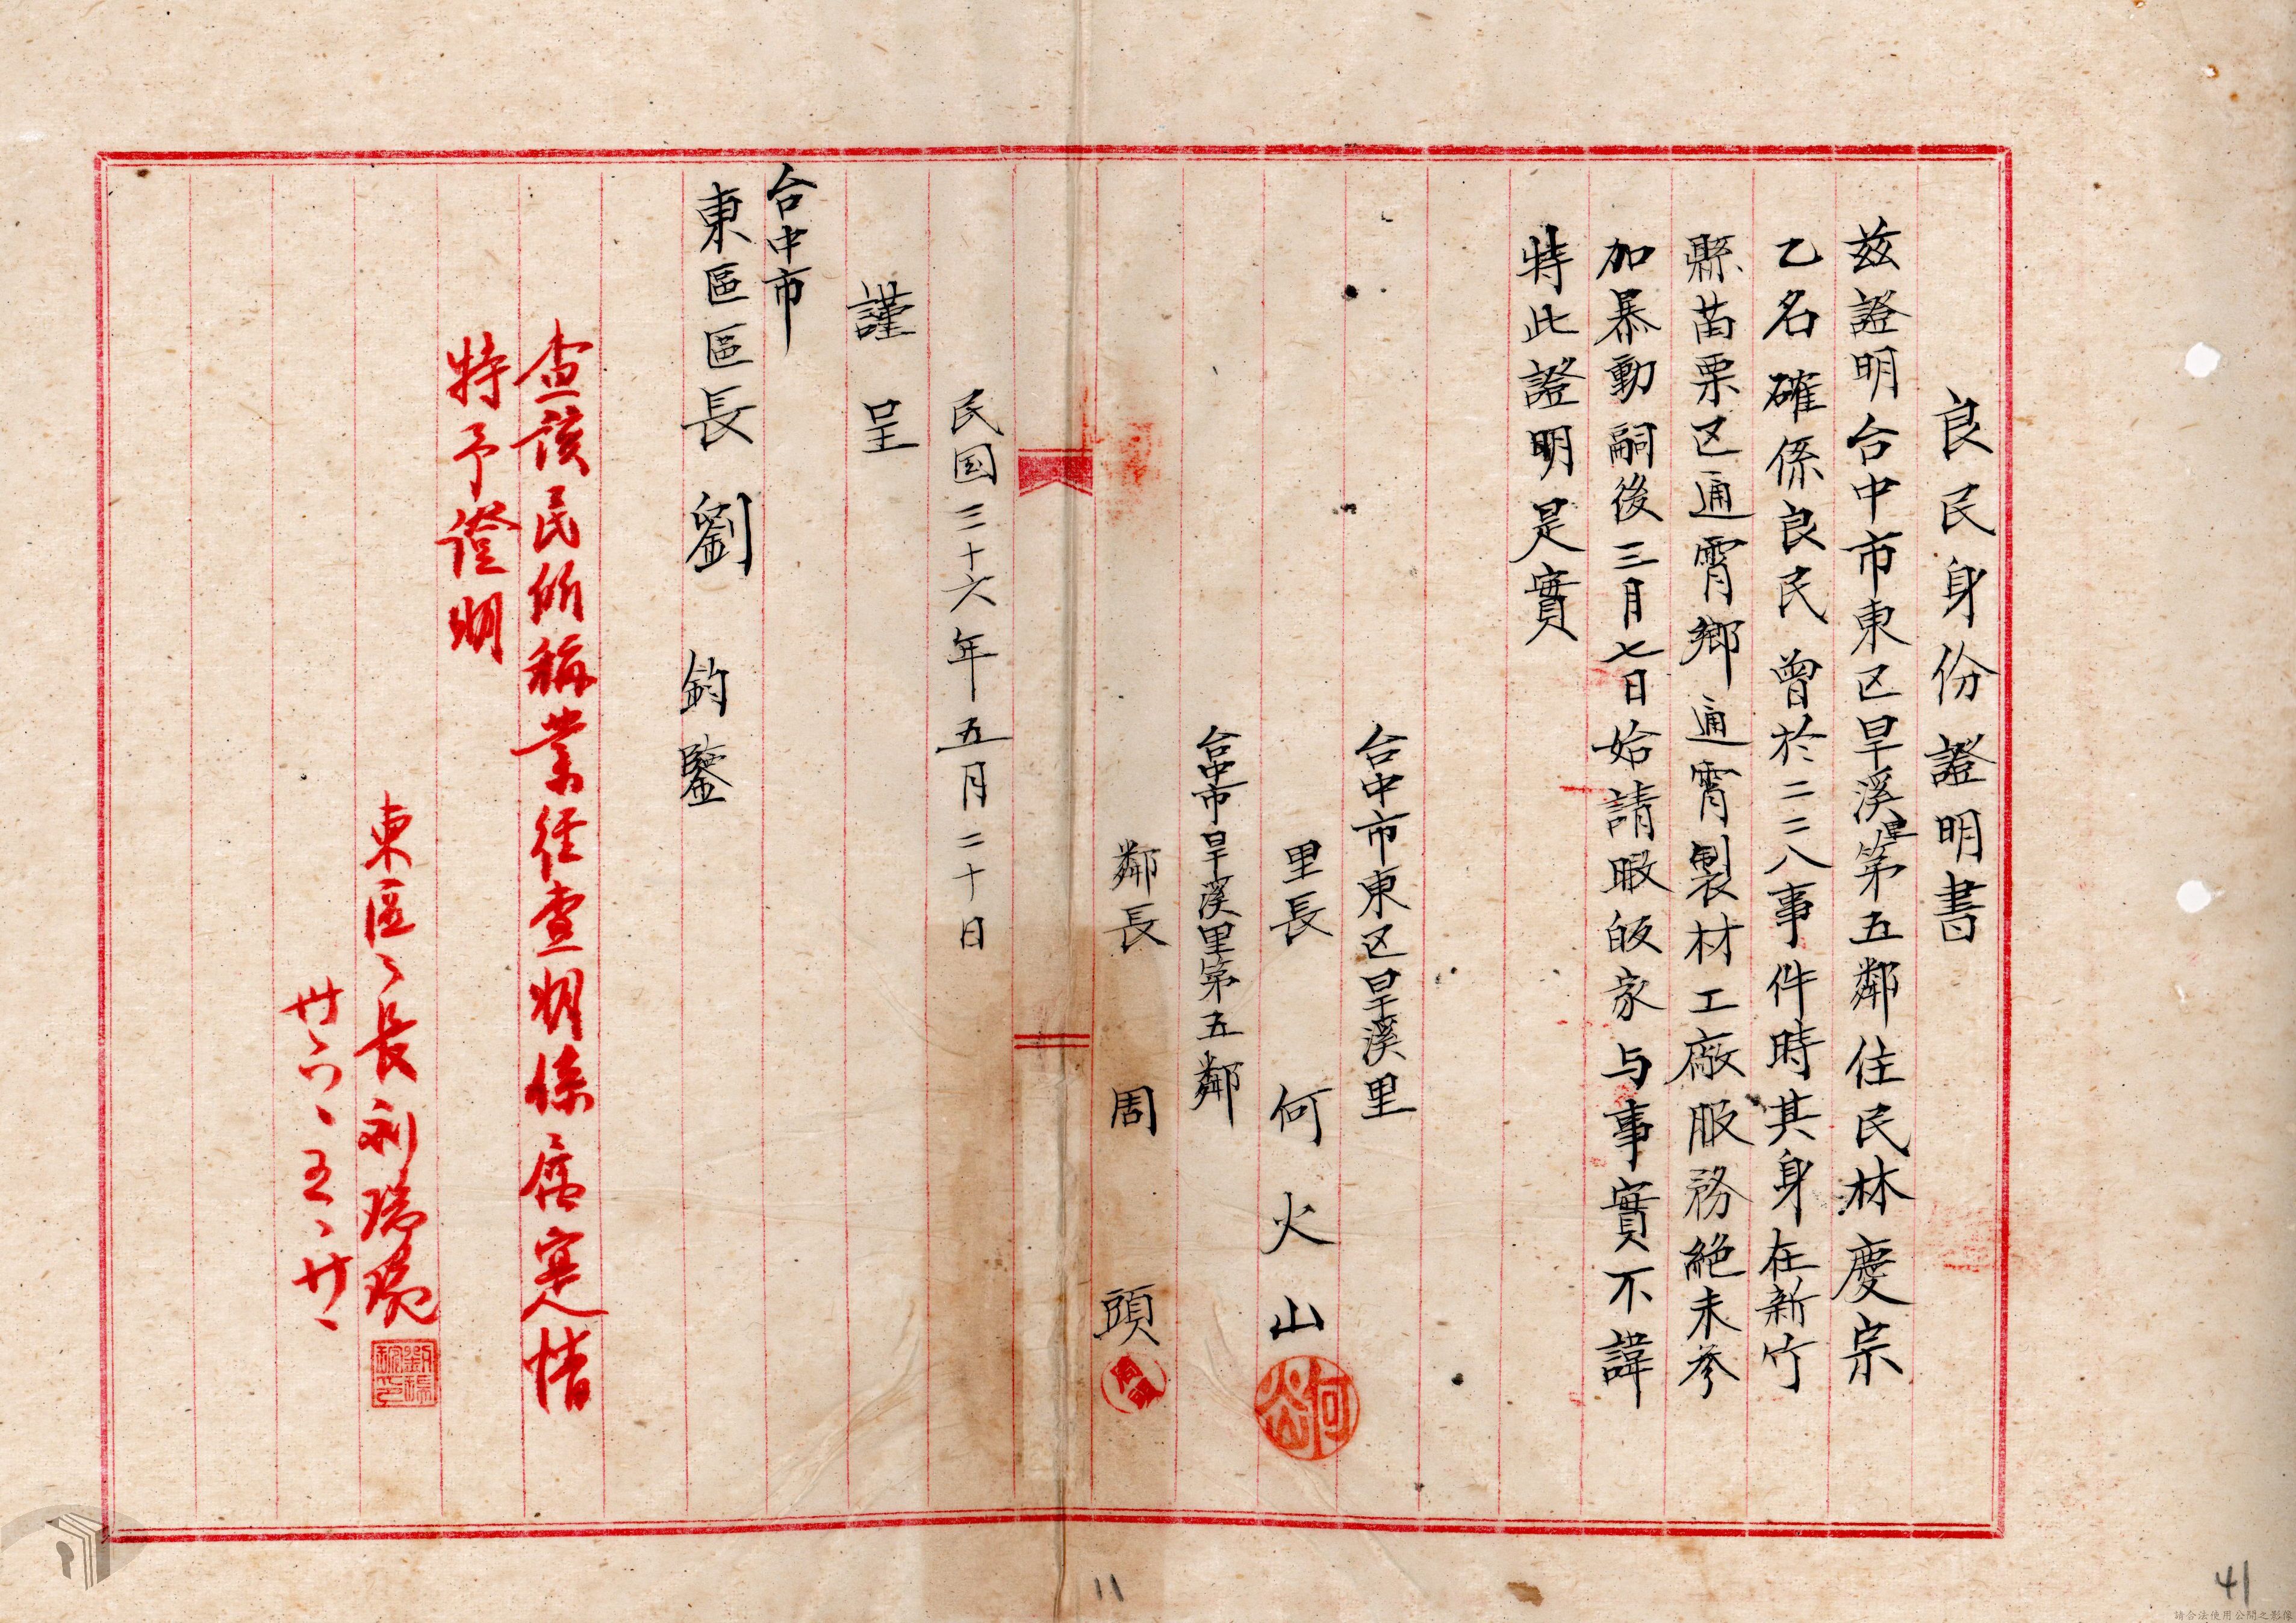 良民身份證明書
茲證明台中市東区旱溪里第五鄰住民林慶宗
乙名確係良民曾於二二八事件時其身在新竹
縣苗栗区通霄鄉通霄製材工廠服務絕未參
加暴動嗣後三月七日始請暇皈家与事實不諱
特此證明是實
台中市東区旱溪里
里長 何火山
台中市旱溪里第五鄰
鄰長 周 頭
民国三十六年五月二十日
謹呈
台中市
東區區長劉 鈞鑒
查該民所稱業經查明係屬實情
特予證明
東區〻長劉瑞琬
卅六、五、廿、
何火山
周頭
11
41
請合法使用公開之影像